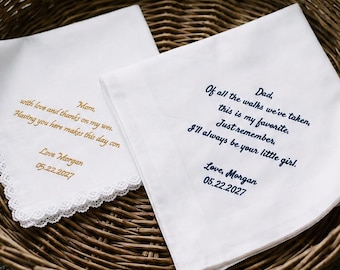 Mom,
with love and thanks on my
Having you here makes this day
Love Morgan
05.22.2027
Dad,
Of all the walks we've taken,
this is my favorite.
Just remember,
I'll always be your little girl.
Love, Morgan
05.22.2027